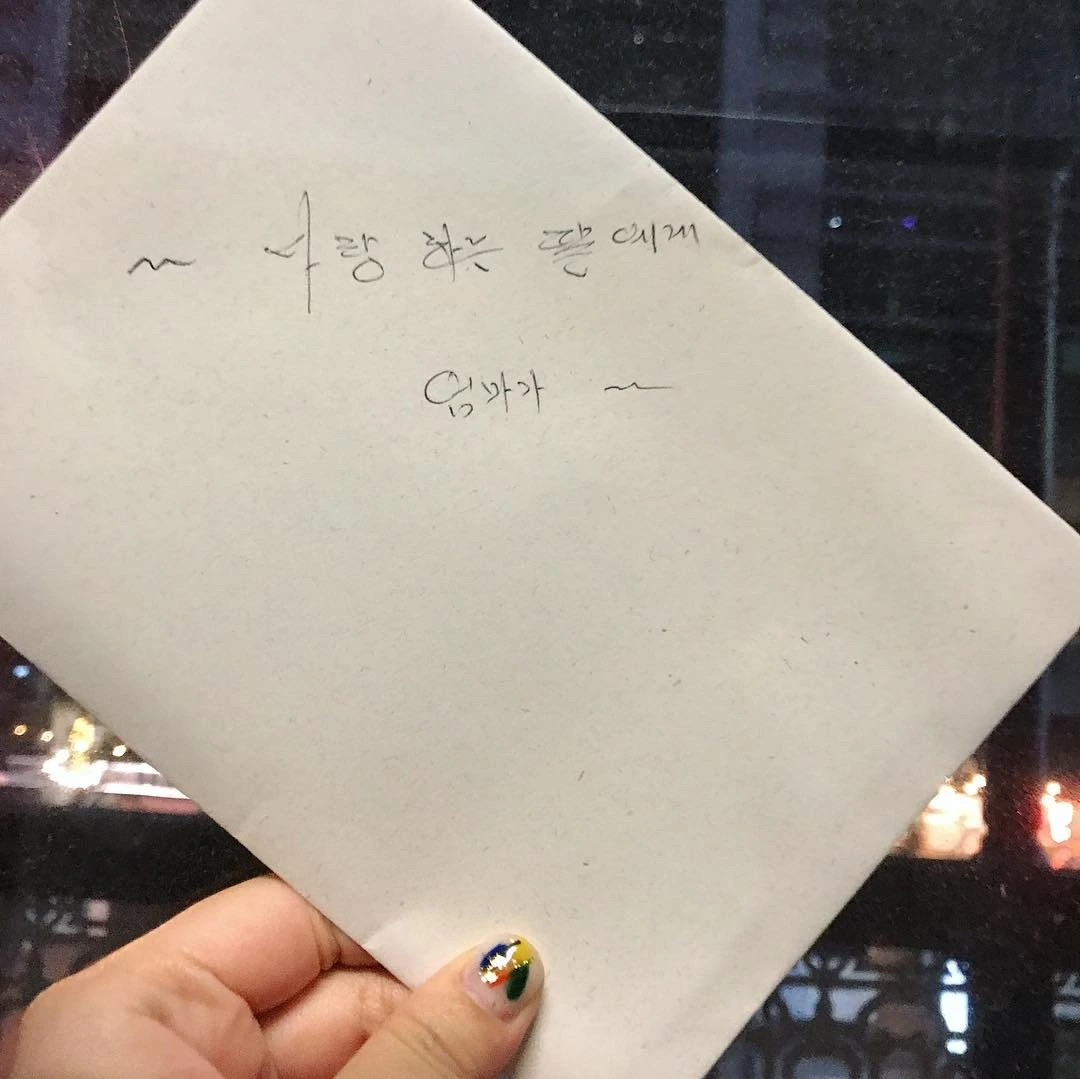 ~ 사랑하는 딸에게
엄마가 ~